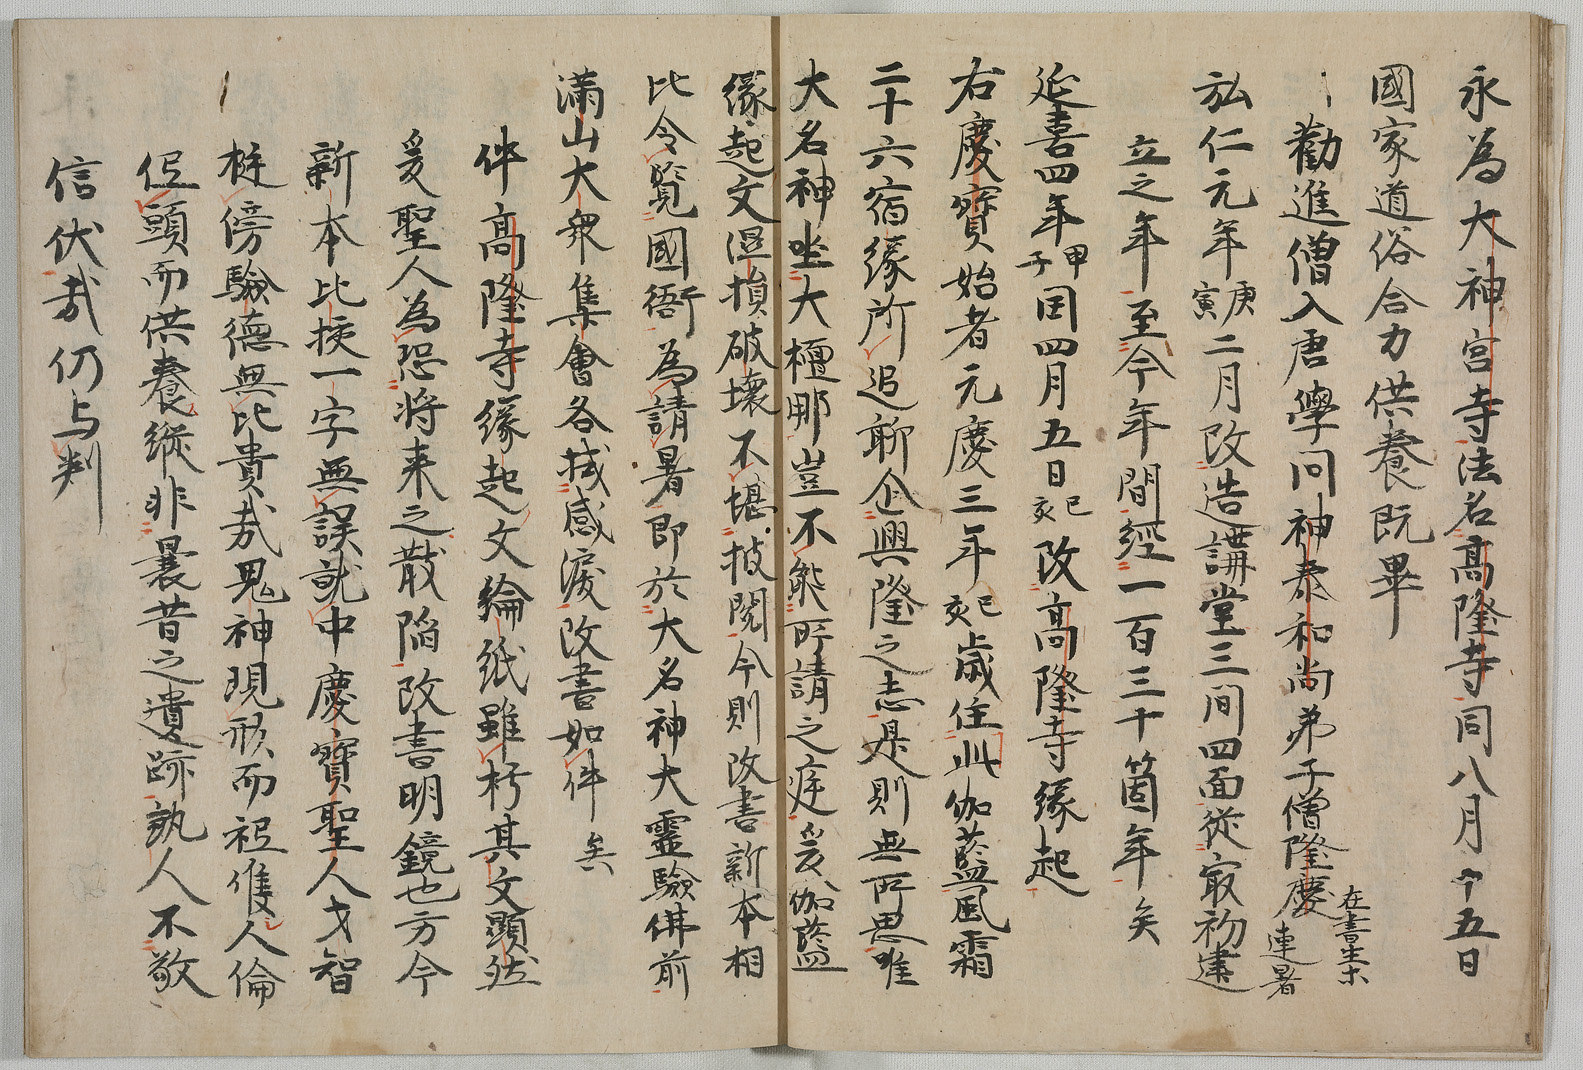 永為大神宮寺法名高隆寺同八月十五日
國家道俗合力供養既畢
勸進僧入唐學問神泰和尚弟子僧隆慶在書生等連署
弘仁元年庚寅二月改造講堂三间四面從寂初建
立之年至今年間經一百三十箇年矣
延喜四年甲子国四月五日己亥改高隆寺緣起
右慶寶始者元慶三年己亥歲住此伽藍風霜
二十六宿緣所追聊企興隆之志是則無所思唯
大名神坐大檀那豈不能所請之庭爰伽藍
緣起文湿損破壞不堪披閲今則改書新本相
比令覧國衙為請署即於大名神大靈驗佛前
滿山大衆集會各拭感淚改書如件矣
件高隆寺緣起文綸紙雖朽其文顯然
爰聖人為恐将来之散陥改書明鏡也方今
新本比挍一字無誤就中慶寶聖人才智
傍驗德無比貴哉鬼神現形而祗隻人倫
頭而供養縱非曩昔之遺跡孰人不敬
信伏哉仍与判